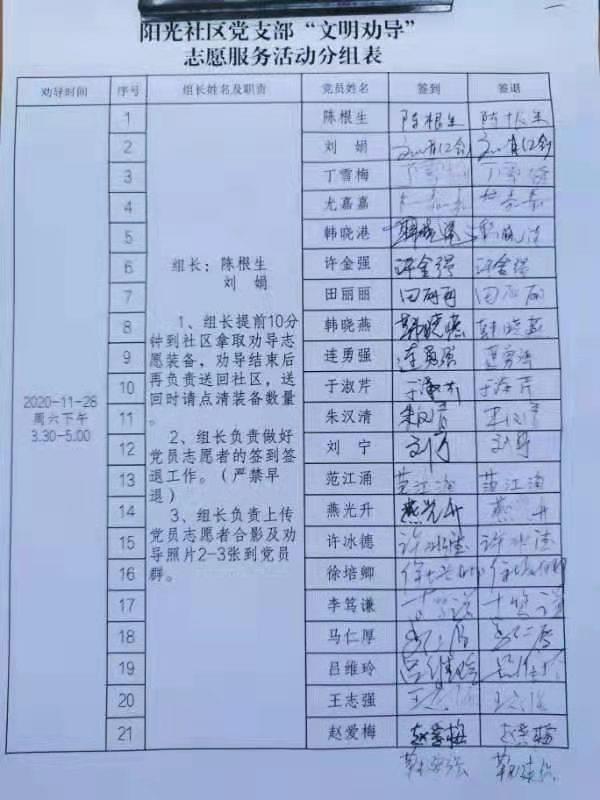 阳光社区党支部“文明劝导”
志愿服务活动分组表
劝导时间 序号 组长姓名及职责 党员姓名 签到 签退
2020-11-28
周六下午
3.30-5.00
组长：陈根生
刘 娟
1、组长提前10分
钟到社区拿取劝导志
愿装备，劝导结束后
再负责送回社区，送
回时请点清装备数量
。
2、组长负责做好
党员志愿者的签到签
退工作。（严禁早
退）
3、组长负责上传
党员志愿者合影及劝
导照片2-3张到党员
群。
1 陈根生 陈根生 陈根生
2 刘 娟
3 丁雪梅
4 尤嘉嘉
5 韩晓港 韩晓港 韩晓港
6 许金强 许金强 许金强
7 田丽丽 田丽丽 田丽丽
8 韩晓燕 韩晓燕 韩晓燕
9 连勇强 连勇强 连勇强
10 于淑芹 于淑芹 于淑芹
11 朱汉清 朱汉清 朱汉清
12 刘 宁 刘宁 刘宁
13 范江涌 范江涌 范江涌
14 燕光升 燕光升 燕 升
15 许冰德 许冰德 许冰德
16 徐培卿
17 李笃谦
18 马仁厚
19 吕维玲 吕维玲
20 王志强
21 赵爱梅 赵爱梅 赵爱梅